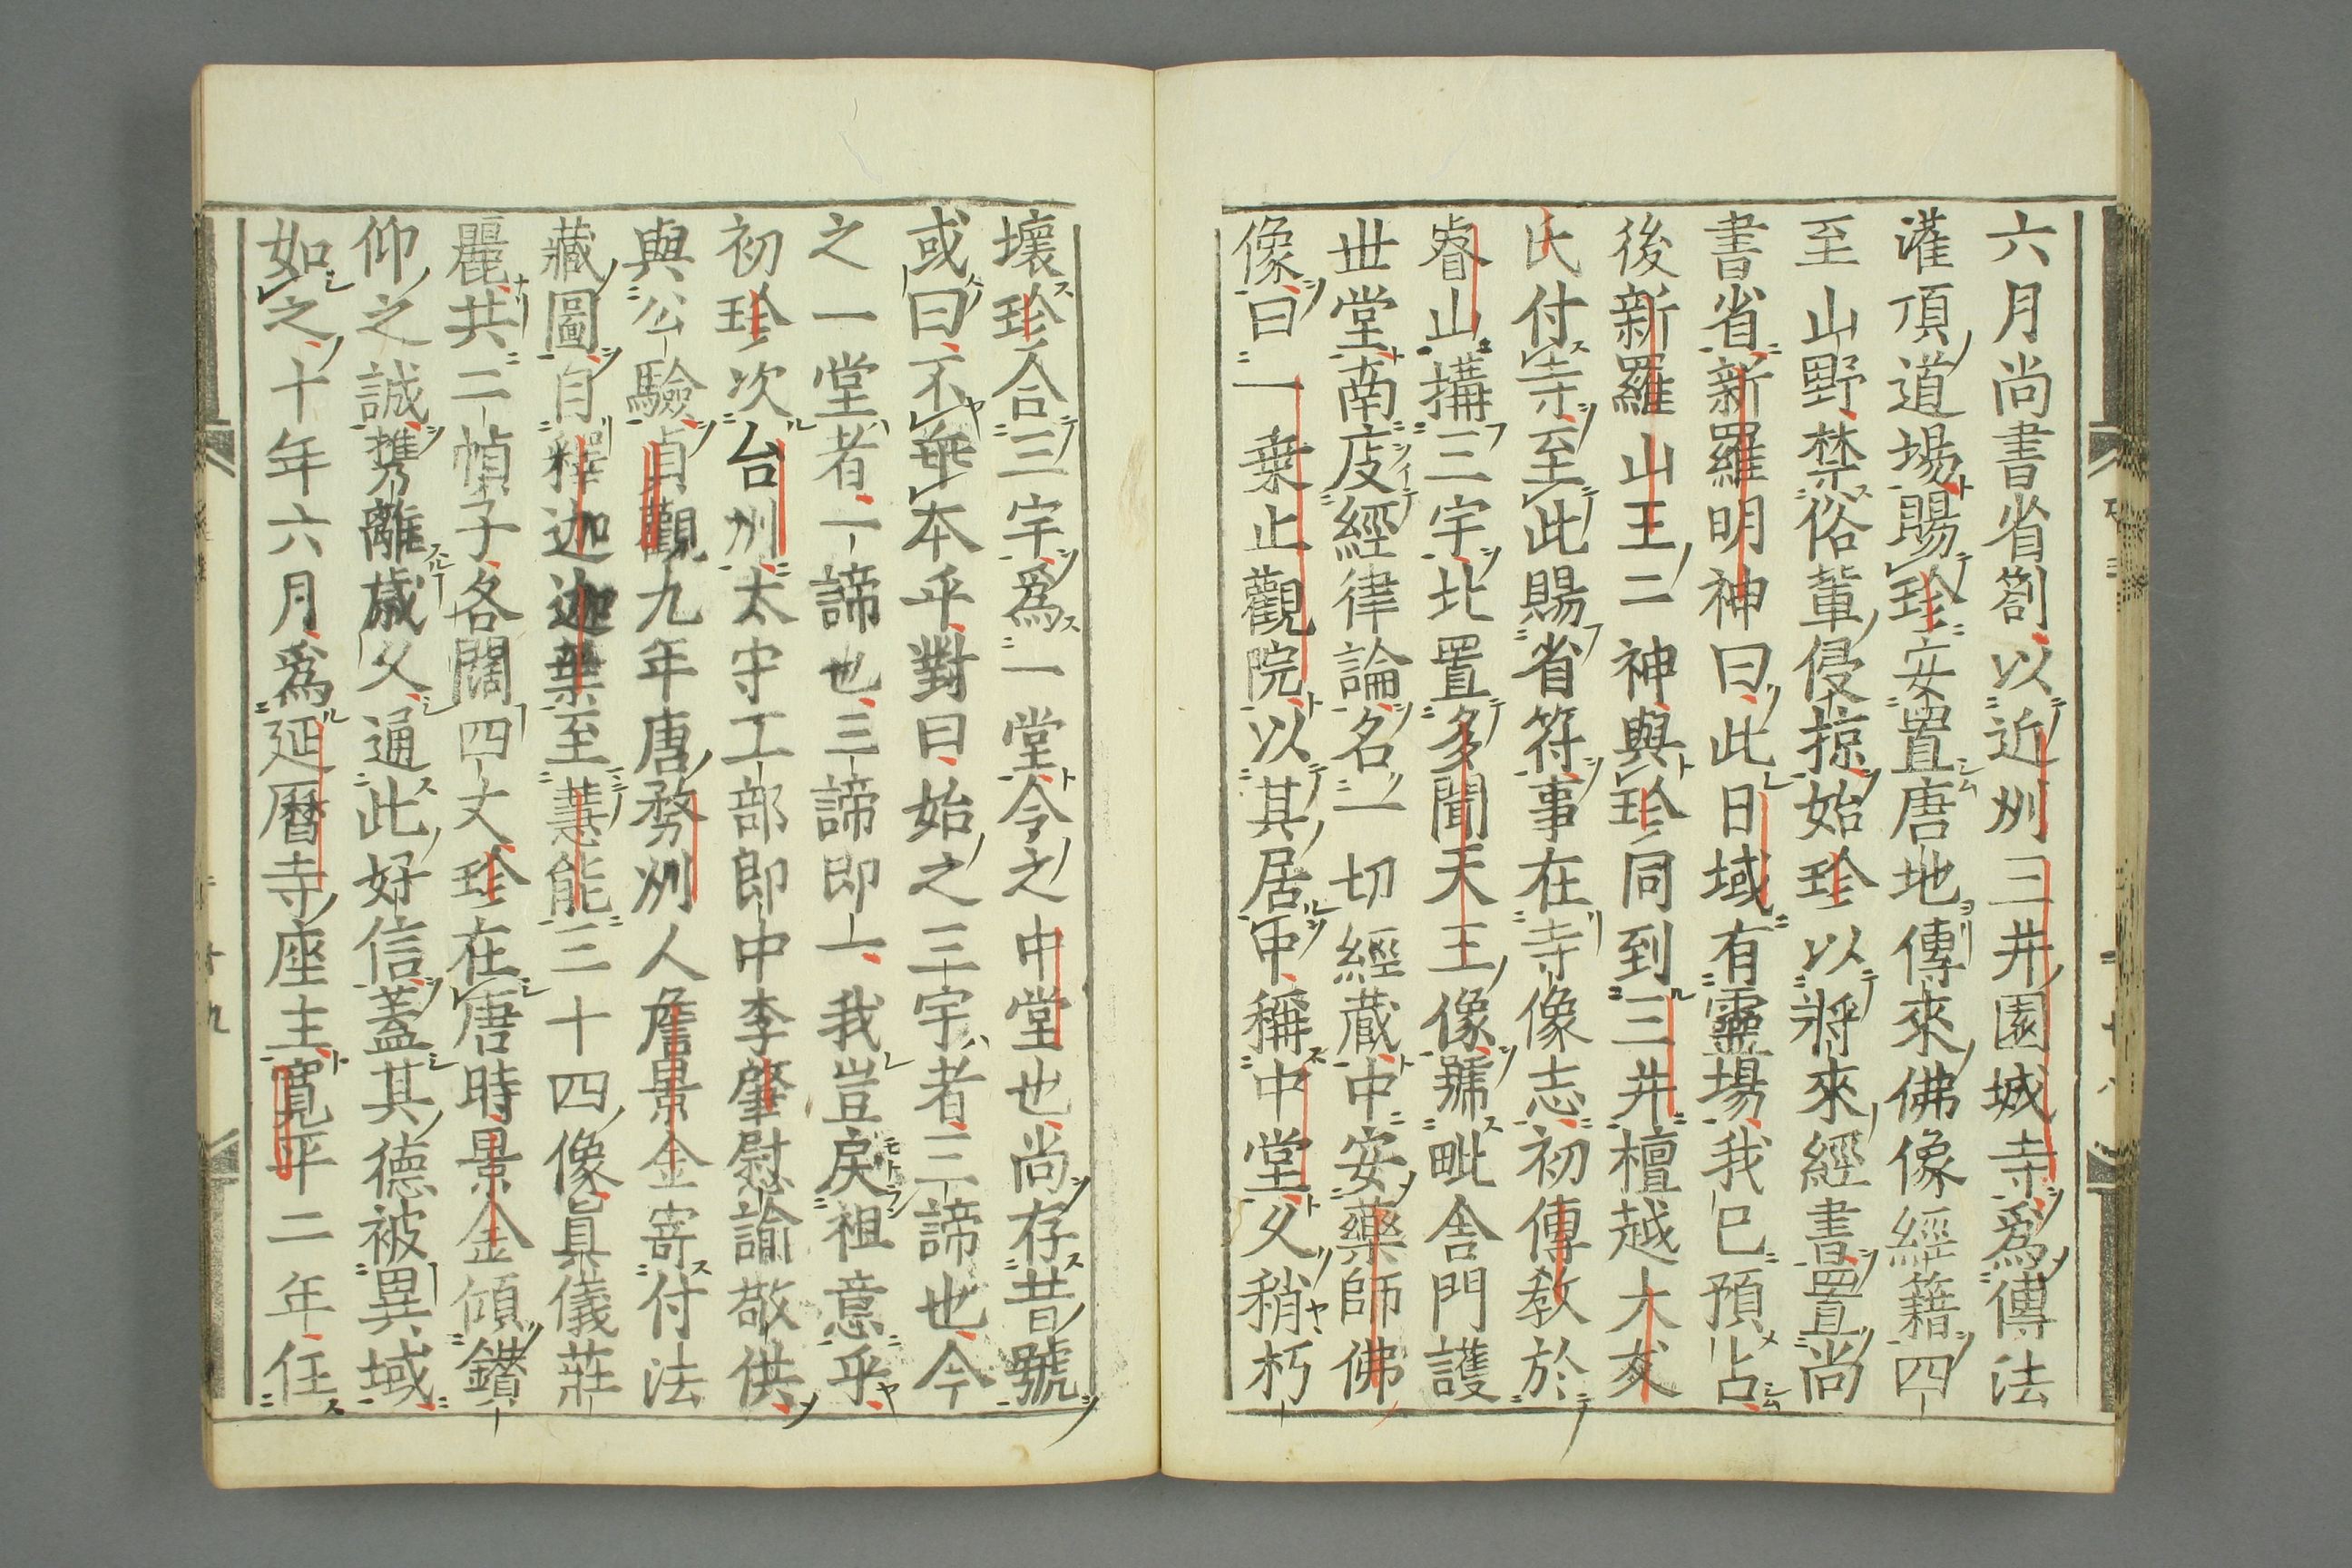 六月尚書省劄以近州三井園城寺爲傳法
灌頂道場賜珍安置唐地傳來佛像經籍四
至山野禁俗輩侵掠始珍以將來經書置尚
書省新羅明神曰此日域有靈場我已預占
後新羅山王二神與珍同到三井檀越大友
氏付寺至此賜省符事在寺像志初傳教於
睿山搆三宇北置多聞天王像號毗舍門護
丗堂南庋經律論名一切經藏中安藥師佛
像曰一乗止觀院以其居中稱中堂久稍朽
壞珍合三宇爲一堂今之中堂也尚存昔號
或曰不乖本乎對曰始之三宇者三諦也今
之一堂者一諦也三諦即一我豈戾祖意乎
初珍次台州太守工部郎中李肇慰諭敬供
與公驗貞觀九年唐務州人詹景金寄付法
藏圖自釋迦迦葉至慧能三十四像眞儀莊
麗共二幀子各闊四丈珍在唐時景金傾鑚
仰之誠携離歳久通此好信蓋其德被異域
如之十年六月爲延曆寺座主寛平二年任